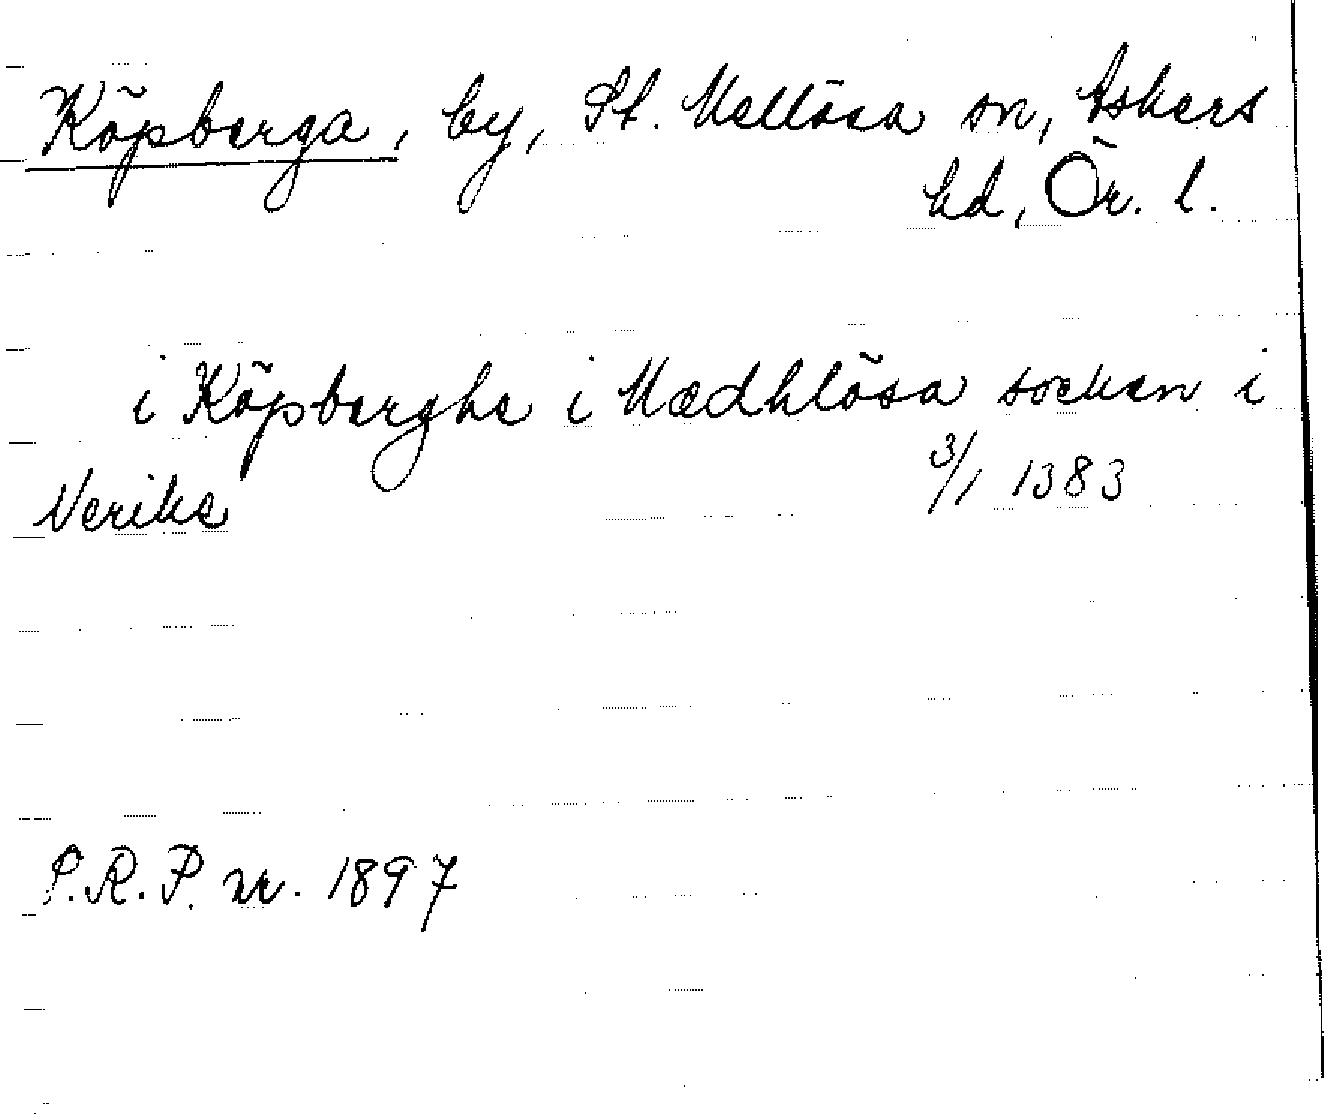 Köpberga, by, St. Mellösa sn, Askers
hd, Ör. l.
i Köpberghe i Mædhlösa socken i
Nerike
3/1 1383
P.R.P. nr. 1897